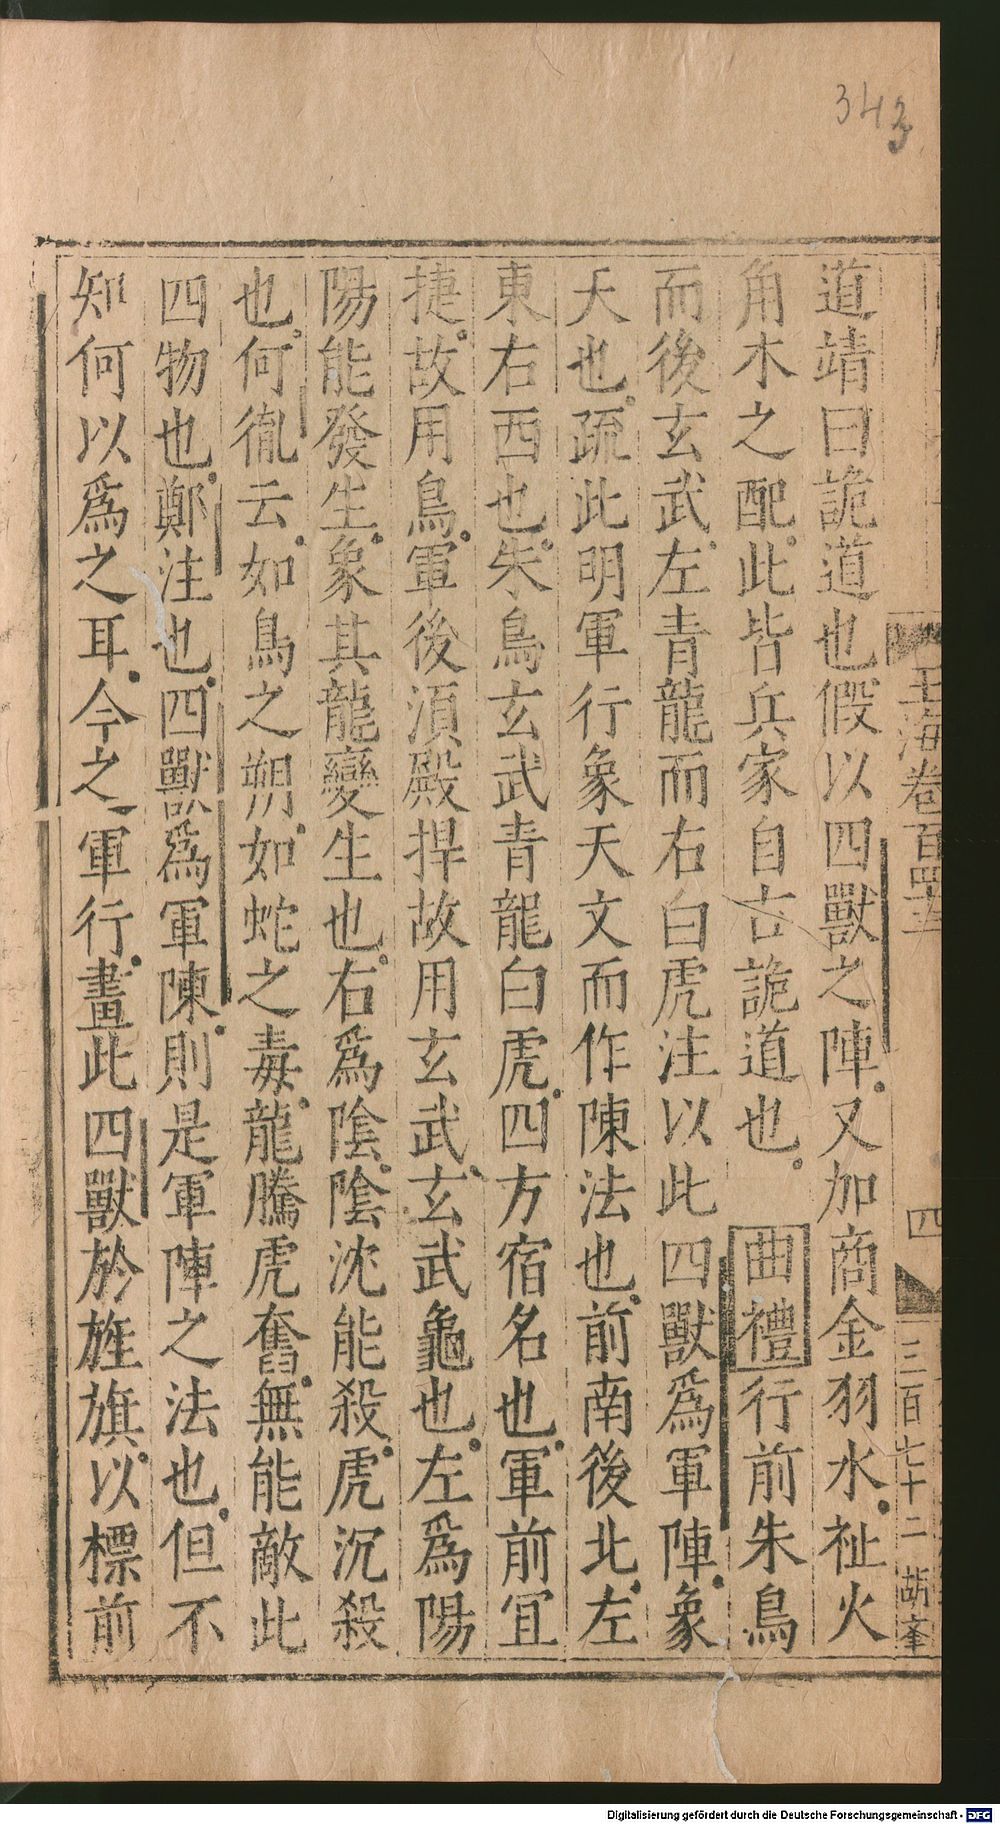 343
玉海卷百四十三
四
三百七十二
胡峯
道靖曰詭道也假以四獸之陣又加商金羽水祉火
角木之配此皆兵家自古詭道也 曲禮行前朱鳥
而後玄武左青龍而右白虎注以此四獸爲軍陣象
天也疏此明軍行象天文而作陳法也前南後北左
東右西也朱鳥玄武青龍白虎四方宿名也軍前冝
捷故用鳥軍後湏殿捍故用玄武玄武龜也左爲陽
陽能發生象其龍變生也右爲陰陰沈能殺虎沉殺
也何㣧云如鳥之翔如蛇之毒龍騰虎奮無能敵此
四物也鄭注也四獸爲軍陳則是軍陣之法也但不
知何以爲之耳今之軍行畫此四獸於旌旗以標前
Digitalisierung gefördert durch die Deutsche Forschungsgemeinschaft - DFG